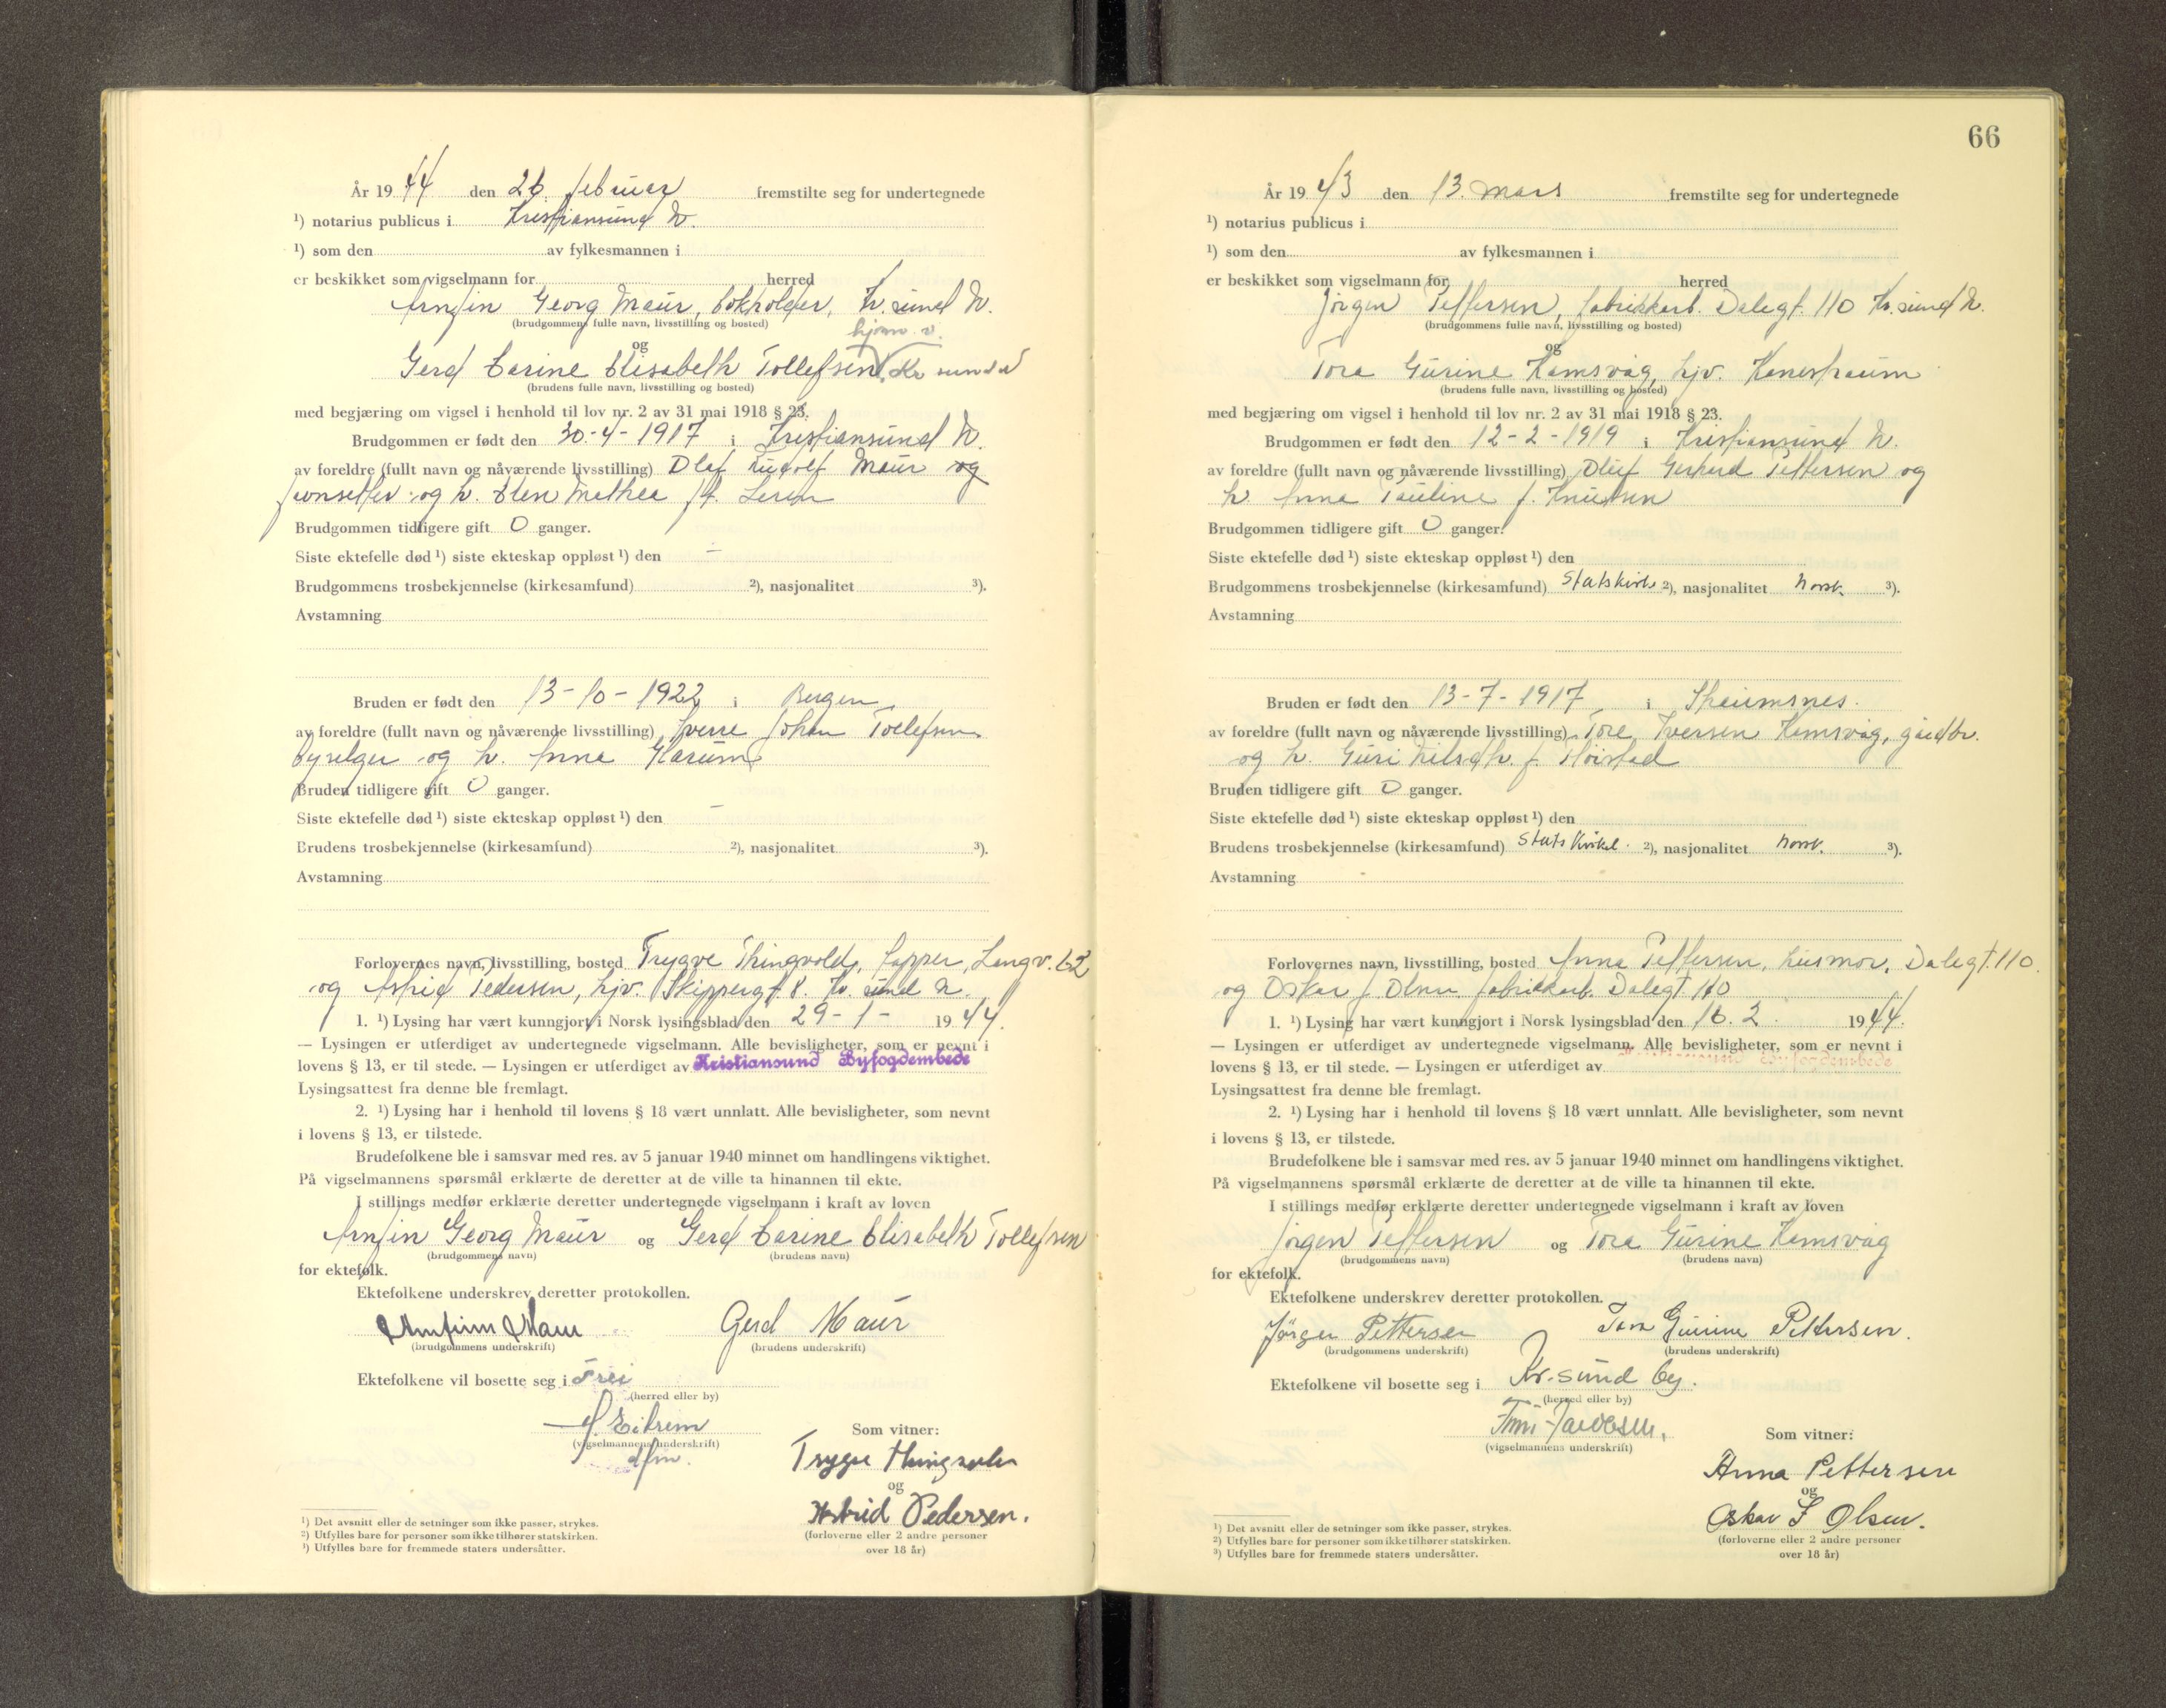 År 19 44 den 26. februar fremstilte seg for undertegnede
¹) notarius publicus i Kristiansund N.
¹) som den av fylkesmannen i
er beskikket som vigselmann for herred
Arnfin Georg Maur, bokholder, Kr. sund N.
(brudgommens fulle navn, livsstilling og bosted)
hjemv.
og
Gerd Carine Elisabeth Tollefsen, Kr sund N
(brudens fulle navn, livsstilling og bosted)
med begjæring om vigsel i henhold til lov nr. 2 av 31 mai 1918 § 23.
Brudgommen er født den 30-4-1917 i Kristiansund N.
av foreldre (fullt navn og nåværende livsstilling) Olaf Rudolf Maur og
og h. Elen Mathea f.
Brudgommen tidligere gift 0 ganger.
Siste ektefelle død ¹) siste ekteskap oppløst ¹) den –
Brudgommens trosbekjennelse (kirkesamfund) ²), nasjonalitet ³).
Avstamning
Bruden er født den 13-10-1922 i Bergen
av foreldre (fullt navn og nåværende livsstilling) Sverre Johan Tollefsen
og h. Anna Karum
Bruden tidligere gift 0 ganger.
Siste ektefelle død ¹) siste ekteskap oppløst ¹) den –
Brudens trosbekjennelse (kirkesamfund) ²), nasjonalitet ³).
Avstamning
Forlovernes navn, livsstilling, bosted Trygve Thingvold, tapper, Langv. 62
og Astrid Pedersen, hjv. Skippergt 8. Kr. sund N.
1. ¹) Lysing har vært kunngjort i Norsk lysingsblad den 29-1- 19 44.
— Lysingen er utferdiget av undertegnede vigselmann. Alle bevisligheter, som er nevnt i
lovens § 13, er til stede. — Lysingen er utferdiget av Kristiansund Byfogdembede
Lysingsattest fra denne ble fremlagt.
2. ¹) Lysing har i henhold til lovens § 18 vært unnlatt. Alle bevisligheter, som nevnt
i lovens § 13, er tilstede.
Brudefolkene ble i samsvar med res. av 5 januar 1940 minnet om handlingens viktighet.
På vigselmannens spørsmål erklærte de deretter at de ville ta hinannen til ekte.
I stillings medfør erklærte deretter undertegnede vigselmann i kraft av loven
Arnfin Georg Maur og Gerd Carine Elisabeth Tollefsen
(brudgommens navn) (brudens navn)
for ektefolk.
Ektefolkene underskrev deretter protokollen.
Arnfinn Maur Gerd Maur
(brudgommens underskrift) (brudens underskrift)
Ektefolkene vil bosette seg i Frei
(herred eller by)
Eikrem
(vigselmannens underskrift)
Som vitner:
Trygve Thingvold
og
Astrid Pedersen.
(forloverne eller 2 andre personer
over 18 år)
¹) Det avsnitt eller de setninger som ikke passer, strykes.
²) Utfylles bare for personer som ikke tilhører statskirken.
³) Utfylles bare for fremmede staters undersåtter.
66
År 19 43 den 13. mars fremstilte seg for undertegnede
¹) notarius publicus i
¹) som den av fylkesmannen i
er beskikket som vigselmann for herred
Jörgen Pettersen, fabrikkarb. Dalegt. 110 Kr. sund N.
(brudgommens fulle navn, livsstilling og bosted)
og
Tora Gurine Hamsvåg, hjv. Kanestraum
(brudens fulle navn, livsstilling og bosted)
med begjæring om vigsel i henhold til lov nr. 2 av 31 mai 1918 § 23.
Brudgommen er født den 12-2-1919 i Kristiansund N.
av foreldre (fullt navn og nåværende livsstilling) Oluf Gerhard Pettersen og
h. Anna Pauline f. Knutsen
Brudgommen tidligere gift 0 ganger.
Siste ektefelle død ¹) siste ekteskap oppløst ¹) den
Brudgommens trosbekjennelse (kirkesamfund) Statskirke ²), nasjonalitet norsk. ³).
Avstamning
Bruden er født den 13-7-1917 i Straumsnes.
av foreldre (fullt navn og nåværende livsstilling) Tore Iversen Hamsvåg, gårdbr.
og h. Guri Nilsdtr. f.
Bruden tidligere gift 0 ganger.
Siste ektefelle død ¹) siste ekteskap oppløst ¹) den
Brudens trosbekjennelse (kirkesamfund) Statskirke. ²), nasjonalitet norsk. ³).
Avstamning
Forlovernes navn, livsstilling, bosted Anna Pettersen, husmor, Dalegt. 110.
og Oskar J. Olsen fabrikkarb. Dalegt. 110
1. ¹) Lysing har vært kunngjort i Norsk lysingsblad den 16. 2. 19 44.
— Lysingen er utferdiget av undertegnede vigselmann. Alle bevisligheter, som er nevnt i
lovens § 13, er til stede. — Lysingen er utferdiget av Kristiansund Byfogdembede
Lysingsattest fra denne ble fremlagt.
2. ¹) Lysing har i henhold til lovens § 18 vært unnlatt. Alle bevisligheter, som nevnt
i lovens § 13, er tilstede.
Brudefolkene ble i samsvar med res. av 5 januar 1940 minnet om handlingens viktighet.
På vigselmannens spørsmål erklærte de deretter at de ville ta hinannen til ekte.
I stillings medfør erklærte deretter undertegnede vigselmann i kraft av loven
Jörgen Pettersen og Tora Gurine Hamsvåg
(brudgommens navn) (brudens navn)
for ektefolk.
Ektefolkene underskrev deretter protokollen.
Jörgen Pettersen Tora Gurine Pettersen.
(brudgommens underskrift) (brudens underskrift)
Ektefolkene vil bosette seg i Kr.sund by.
(herred eller by)
Jacobsen.
(vigselmannens underskrift)
Som vitner:
Anna Pettersen
og
Oskar J Olsen.
(forloverne eller 2 andre personer
over 18 år)
¹) Det avsnitt eller de setninger som ikke passer, strykes.
²) Utfylles bare for personer som ikke tilhører statskirken.
³) Utfylles bare for fremmede staters undersåtter.